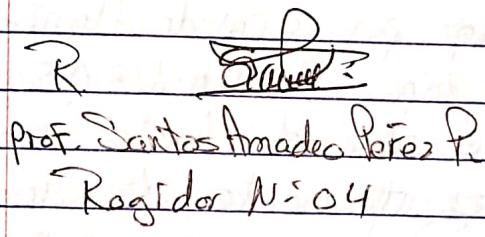 R
Prof. Santos Amadeo Pérez P.
Regidor N: 04